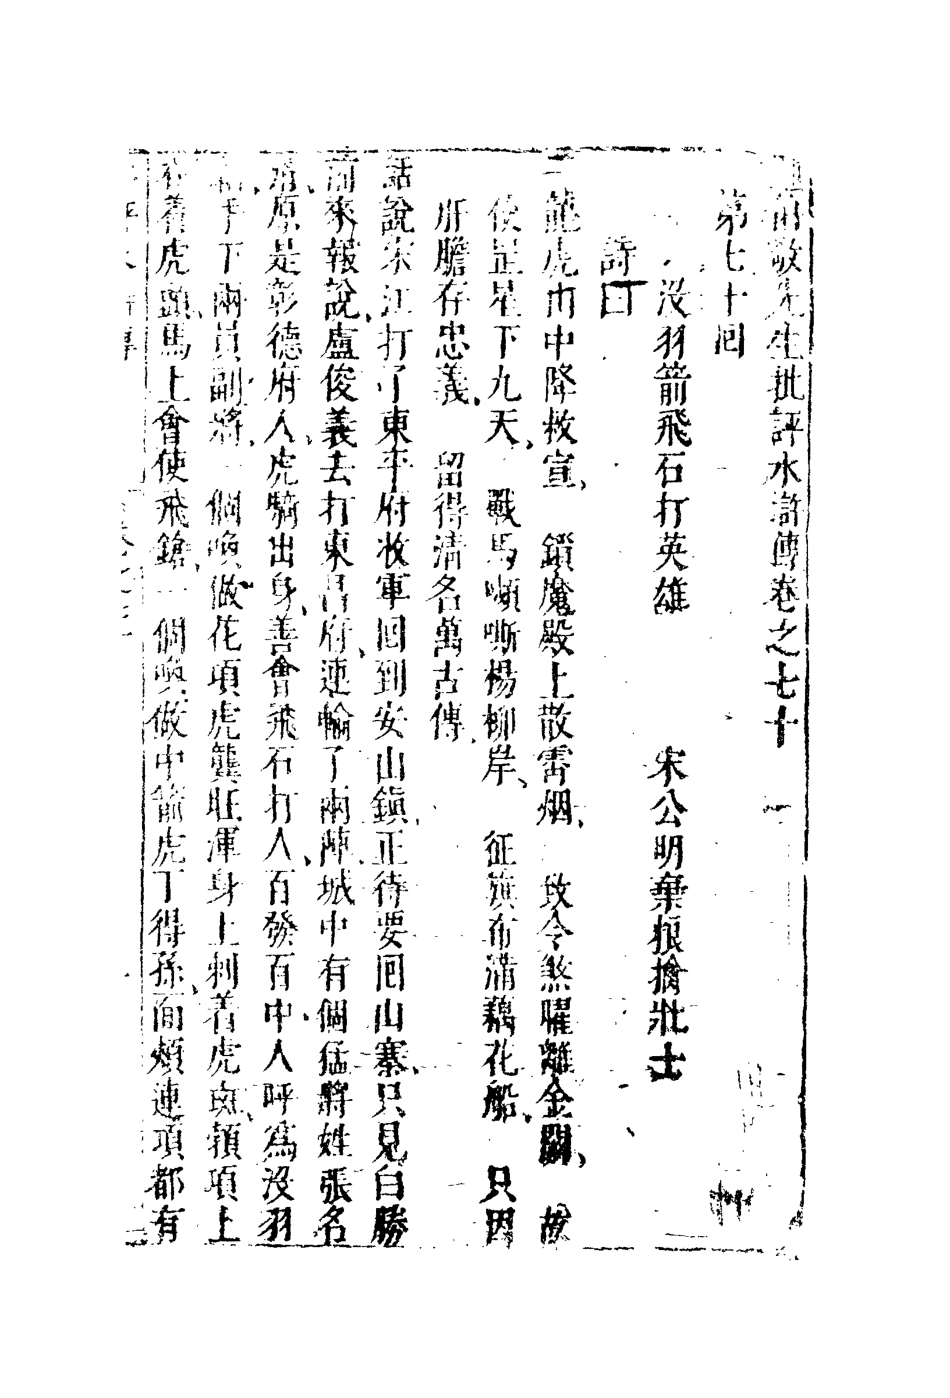 敬先生批評水滸傳卷之七十
第七十囘
沒羽箭飛石打英雄　宋公明棄粮擒壯士
詩曰
龍虎山中降敕宣、鎖魔殿上散霄烟、致令煞曜離金闕、故
使罡星下九天、戰馬嘶楊柳岸、征旗布滿藕花船、只因
肝膽存忠義、留得清名萬古傳、
話說宋江打了東平府收軍回到安山鎮正待要囘山寨、只見白勝
前來報說、盧俊義去打東昌府、連輸了兩陣、城中有個猛將姓張名
清、原是彰德府人、虎騎出身、善會飛石打人、百發百中、人呼爲沒羽
箭、手下兩員副將、一個喚做花項虎龔旺渾身上刺着虎斑、頸項上
吞着虎頭、馬上會使飛鎗、一個喚做中箭虎丁得孫、面頰連項都有